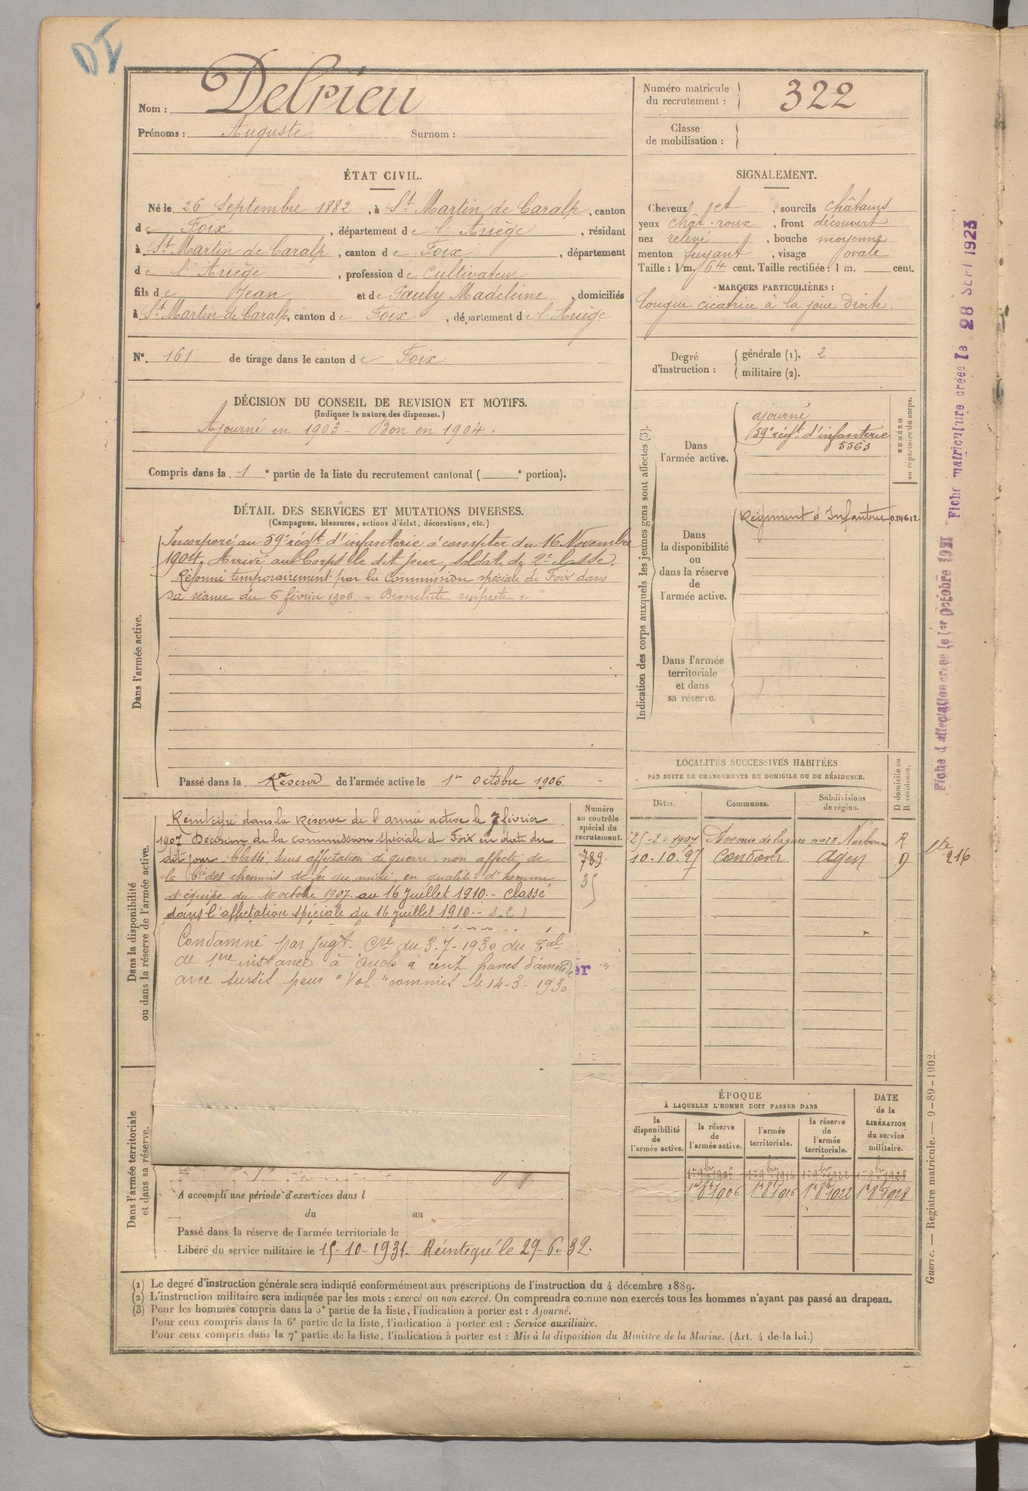 DI
Nom : Delrieu
Prénoms : Auguste Surnom :
Numéro matricule du recrutement : 322
Classe de mobilisation :
ÉTAT CIVIL.
Né le 26 Septembre 1882, à St Martin de Caralp, canton
de Foix, département de l'Ariège, résidant
à St Martin de Caralp, canton de Foix, département
d l'Ariège, profession de Cultivateur
fils de Jean et de Fauby Madeleine, domiciliés
à St Martin de Caralp, canton de Foix, département de l'Ariège
N°. 161 de tirage dans le canton de Foix
SIGNALEMENT.
Cheveux et, sourcils châtains
yeux chât. roux, front découvert
nez relevé, bouche moyenne
menton fuyant, visage ovale
Taille : 1 m. 64 cent. Taille rectifiée : 1 m. cent.
MARQUES PARTICULIÈRES :
Longue cicatrice à la joue droite.
Degré d'instruction : générale (1). 2
militaire (2).
DÉCISION DU CONSEIL DE REVISION ET MOTIFS.
(Indiquer la nature des dispenses.)
Ajourné en 1903 - Bon en 1904.
Compris dans la 1e partie de la liste du recrutement cantonal ( e portion).
DÉTAIL DES SERVICES ET MUTATIONS DIVERSES.
(Campagnes, blessures, actions d'éclat, décorations, etc.)
Dans l'armée active.
Incorporé au 59e régt d'infanterie à compter du 16 Novembre
1904. Arrivé au Corps le dit jour, soldat de 2e classe.
Réformé temporairement par la Commission spéciale de Foix dans
sa séance du 6 février 1906. « Bronchite suspecte »
Passé dans la Réserve de l'armée active le 1er Octobre 1906.
Indication des corps auxquels les jeunes gens sont affectés (3).
NUMÉRO au répertoire du corps.
Dans l'armée active.
ajourné
59e régt d'infanterie
5563
Dans la disponibilité ou dans la réserve de l'armée active.
Régiment d'Infanterie
Dans l'armée territoriale et dans sa réserve.
LOCALITÉS SUCCESSIVES HABITÉES
PAR SUITE DE CHANGEMENTS DE DOMICILE OU DE RÉSIDENCE.
Dates. Communes. Subdivisions de région. D domicile ou R résidence.
25-2-1907 Narbonne R
10.10.27 Condom Agen D
216
Dans la disponibilité ou dans la réserve de l'armée active.
Numéro au contrôle spécial du recrutement.
789
35
Réintégré dans la Réserve de l'armée active le 7 février
1907 Décision de la commission spéciale de Foix en date du
dit jour. Classé sans affectation de guerre : non affecté de
la Cie des chemins de fer du midi, en qualité d'homme
d'équipe du 10 octobre 1907 au 16 juillet 1910. - Classé
dans l'affectation spéciale du 16 juillet 1910 -
Condamné par jugt. Cre du 3-7-1930 du Tal
de 1ère instance à Auch à cent francs d'amende
avec sursis pour "Vol" commis le 14-3-1930
er
Dans l'armée territoriale et dans sa réserve.
A accompli une période d'exercices dans l
du au
Passé dans la réserve de l'armée territoriale le
Libéré du service militaire le 15-10-1931. Réintégré le 29-6-32.
ÉPOQUE
À LAQUELLE L'HOMME DOIT PASSER DANS
la disponibilité de l'armée active. la réserve de l'armée active. l'armée territoriale. la réserve de l'armée territoriale.
DATE de la LIBÉRATION du service militaire.
1er 8bre 1906 1er 8bre 1916 1er 8bre 1922 1er 8bre 1928
(1) Le degré d'instruction générale sera indiqué conformément aux prescriptions de l'instruction du 4 décembre 1889.
(2) L'instruction militaire sera indiquée par les mots : exercé ou non exercé. On comprendra comme non exercés tous les hommes n'ayant pas passé au drapeau.
(3) Pour les hommes compris dans la 5e partie de la liste, l'indication à porter est : Ajourné.
Pour ceux compris dans la 6e partie de la liste, l'indication à porter est : Service auxiliaire.
Pour ceux compris dans la 7e partie de la liste, l'indication à porter est : Mis à la disposition du Ministre de la Marine. (Art. 4 de la loi.)
Guerre. — Registre matricule. — 9-89-1902.
Fiche d'affectation créée le 1er Octobre 1921
Fiche matriculaire créée le 28 SEPT 1923